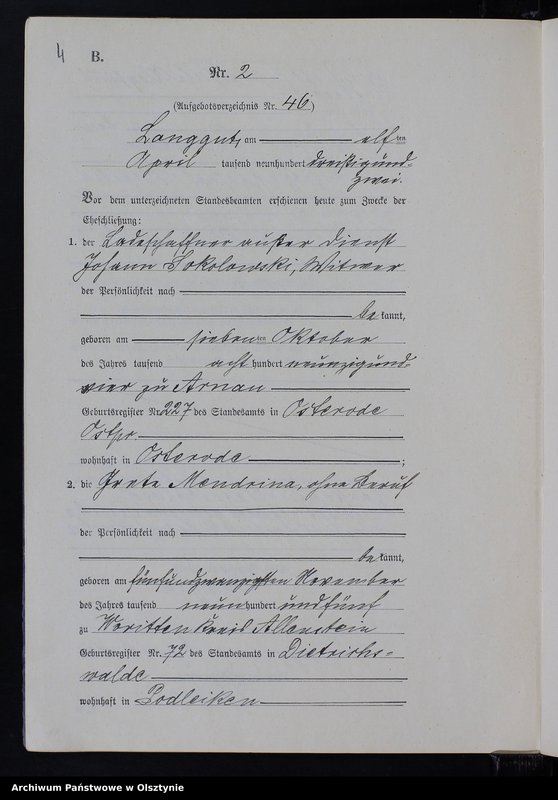 4
B.
Nr. 2
(Aufgebotsverzeichnis Nr. 46)
Langgut, am elf ten
April tausend neunhundert dreißigund-
zwei.
Vor dem unterzeichneten Standesbeamten erschienen heute zum Zwecke der
Eheschließung:
1. der Ladeschaffner außer Dienst
Johann Sokolowski, Witwer
der Persönlichkeit nach
be kannt,
geboren am sieben ten Oktober
des Jahres tausend acht hundert neunzigund-
vier zu Arnau
Geburtsregister Nr. 227 des Standesamts in Osterode
Ostpr.
wohnhaft in Osterode ;
2. die Grete Mendrina, ohne Beruf
der Persönlichkeit nach
be kannt,
geboren am fünfundzwanzigsten November
des Jahres tausend neun hundert undfünf
zu Woritten Kreis Allenstein
Geburtsregister Nr. 72 des Standesamts in Dietrichs-
walde
wohnhaft in Podleiken
Archiwum Państwowe w Olsztynie